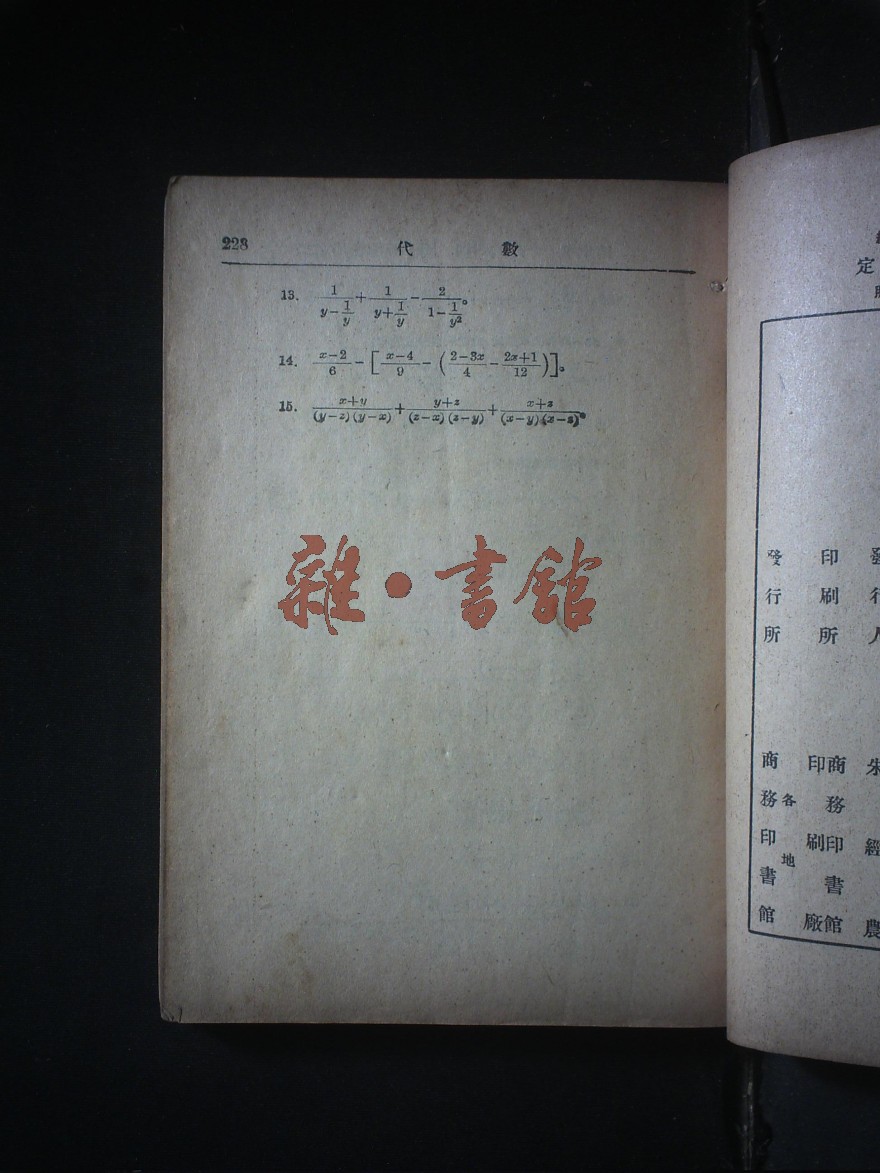 228 代 數
13. \frac{1}{y-\frac{1}{y}}+\frac{1}{y+\frac{1}{y}}-\frac{2}{1-\frac{1}{y^2}}。
14. \frac{x-2}{6}-[\frac{x-4}{9}-(\frac{2-3x}{4}-\frac{2x+1}{12})]。
15. \frac{x+y}{(y-z)(y-x)}+\frac{y+z}{(z-x)(z-y)}+\frac{x+z}{(x-y)(x-z)}。
雜·書館
定
發行人 朱經農
印刷所 商務印書館印刷廠
發行所 各地商務印書館